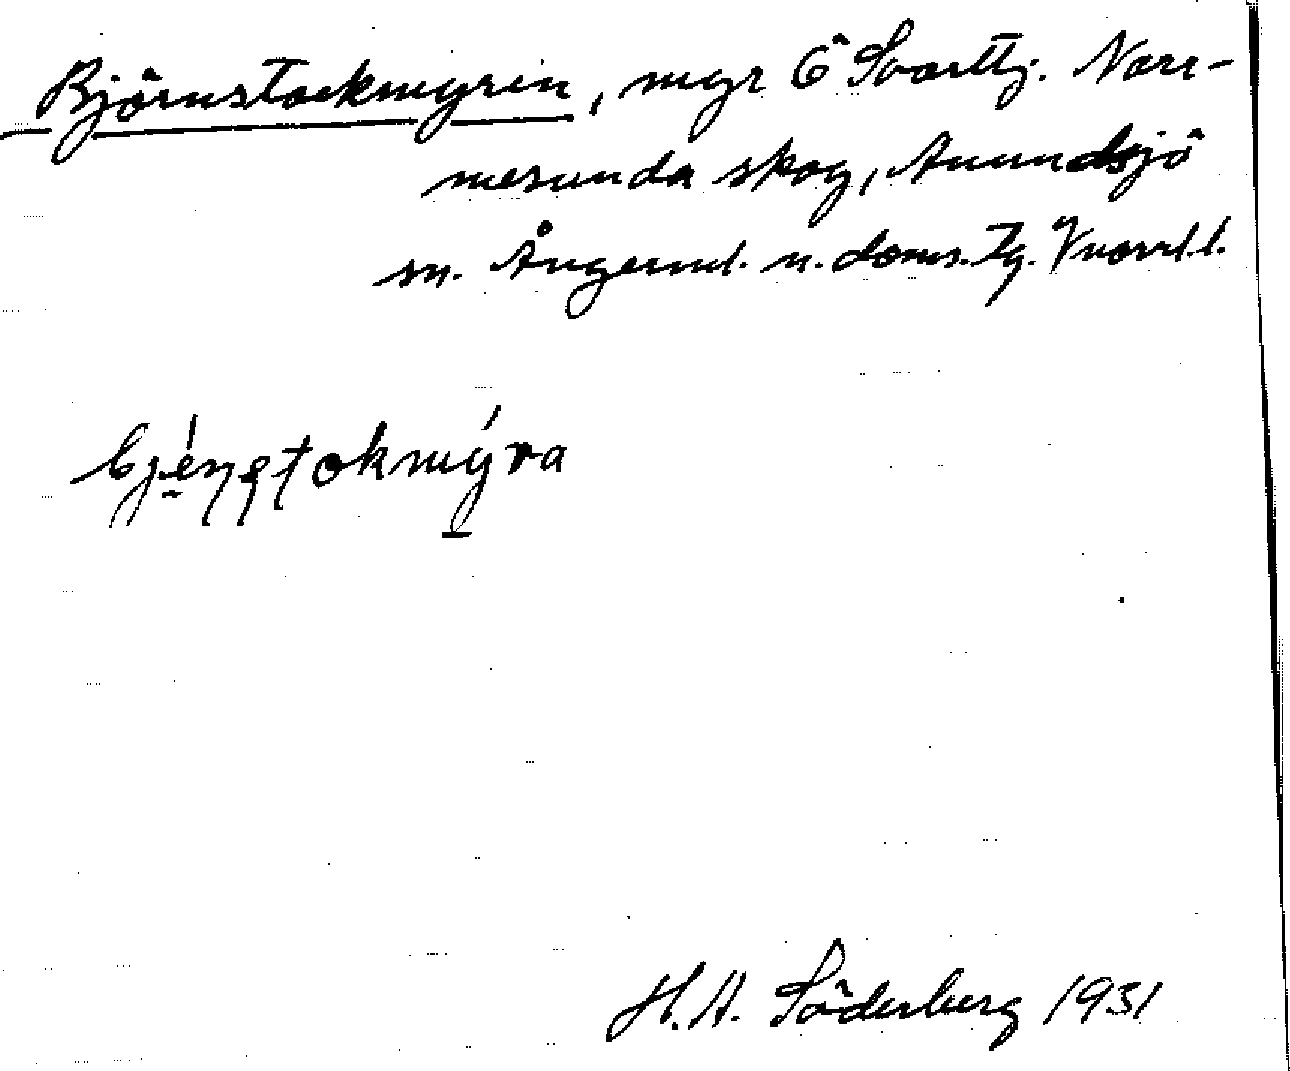 Björnstockmyren, myr Ö Svarttj. Norr-
mesunda skog, Anundsjö
sn. Ångerml. n. doms. tg. Vnorrl. l.
bjɵ̀ṇṣṭokmýra
H. A. Söderberg 1931